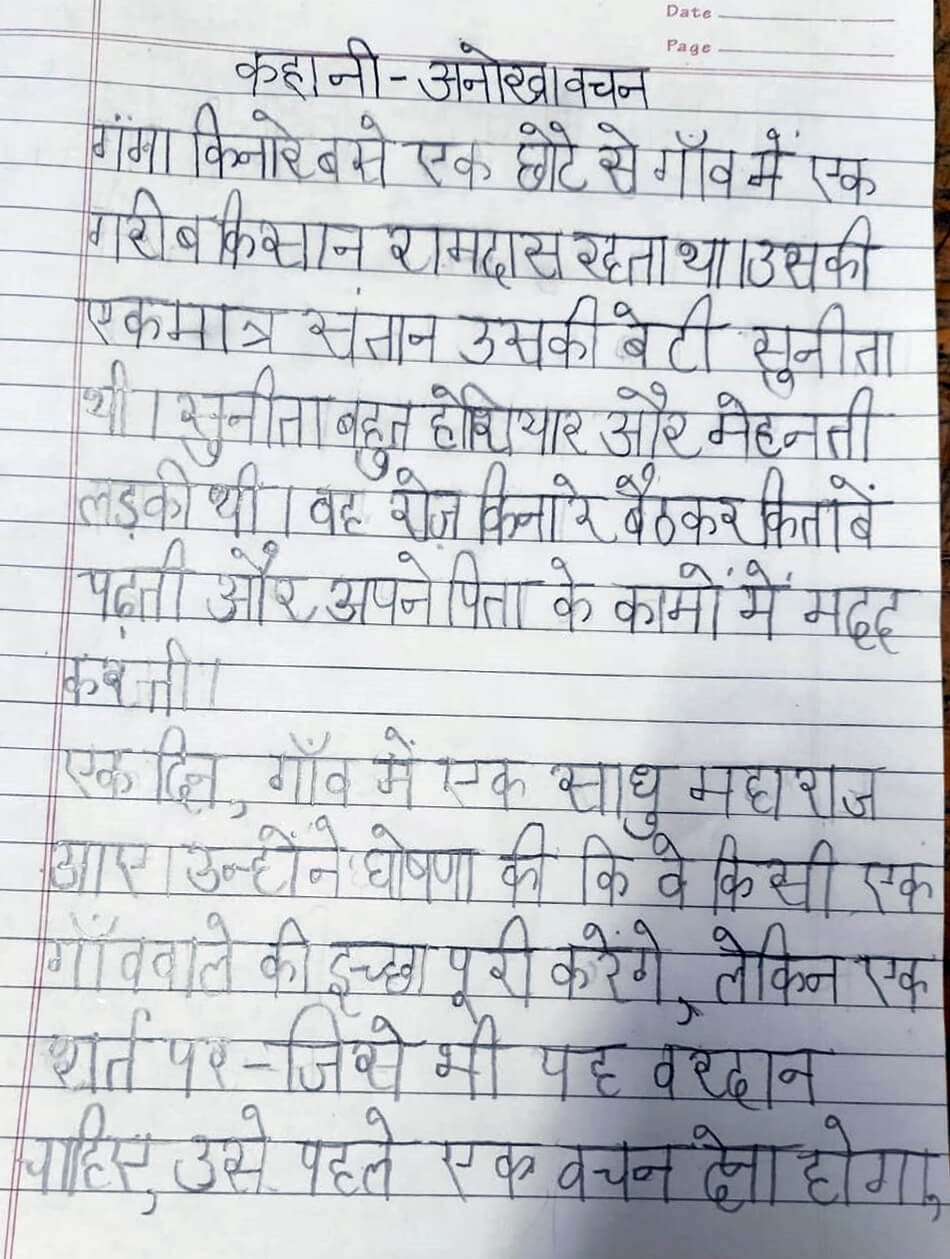 Date
Page
कहानी - अनोखा वचन
गंगा किनारे बसे एक छोटे से गाँव में एक
गरीब किसान रामदास रहता था। उसकी
एकमात्र संतान उसकी बेटी सुनीता
थी। सुनीता बहुत होशियार और मेहनती
लड़की थी। वह रोज़ किनारे बैठकर किताबें
पढ़ती और अपने पिता के कामों में मदद
करती।
एक दिन, गाँव में एक साधु महाराज
आए। उन्होंने घोषणा की कि वे किसी एक
गाँववाले की इच्छा पूरी करेंगे, लेकिन एक
शर्त पर - जिसे भी यह वरदान
चाहिए, उसे पहले एक वचन देना होगा,